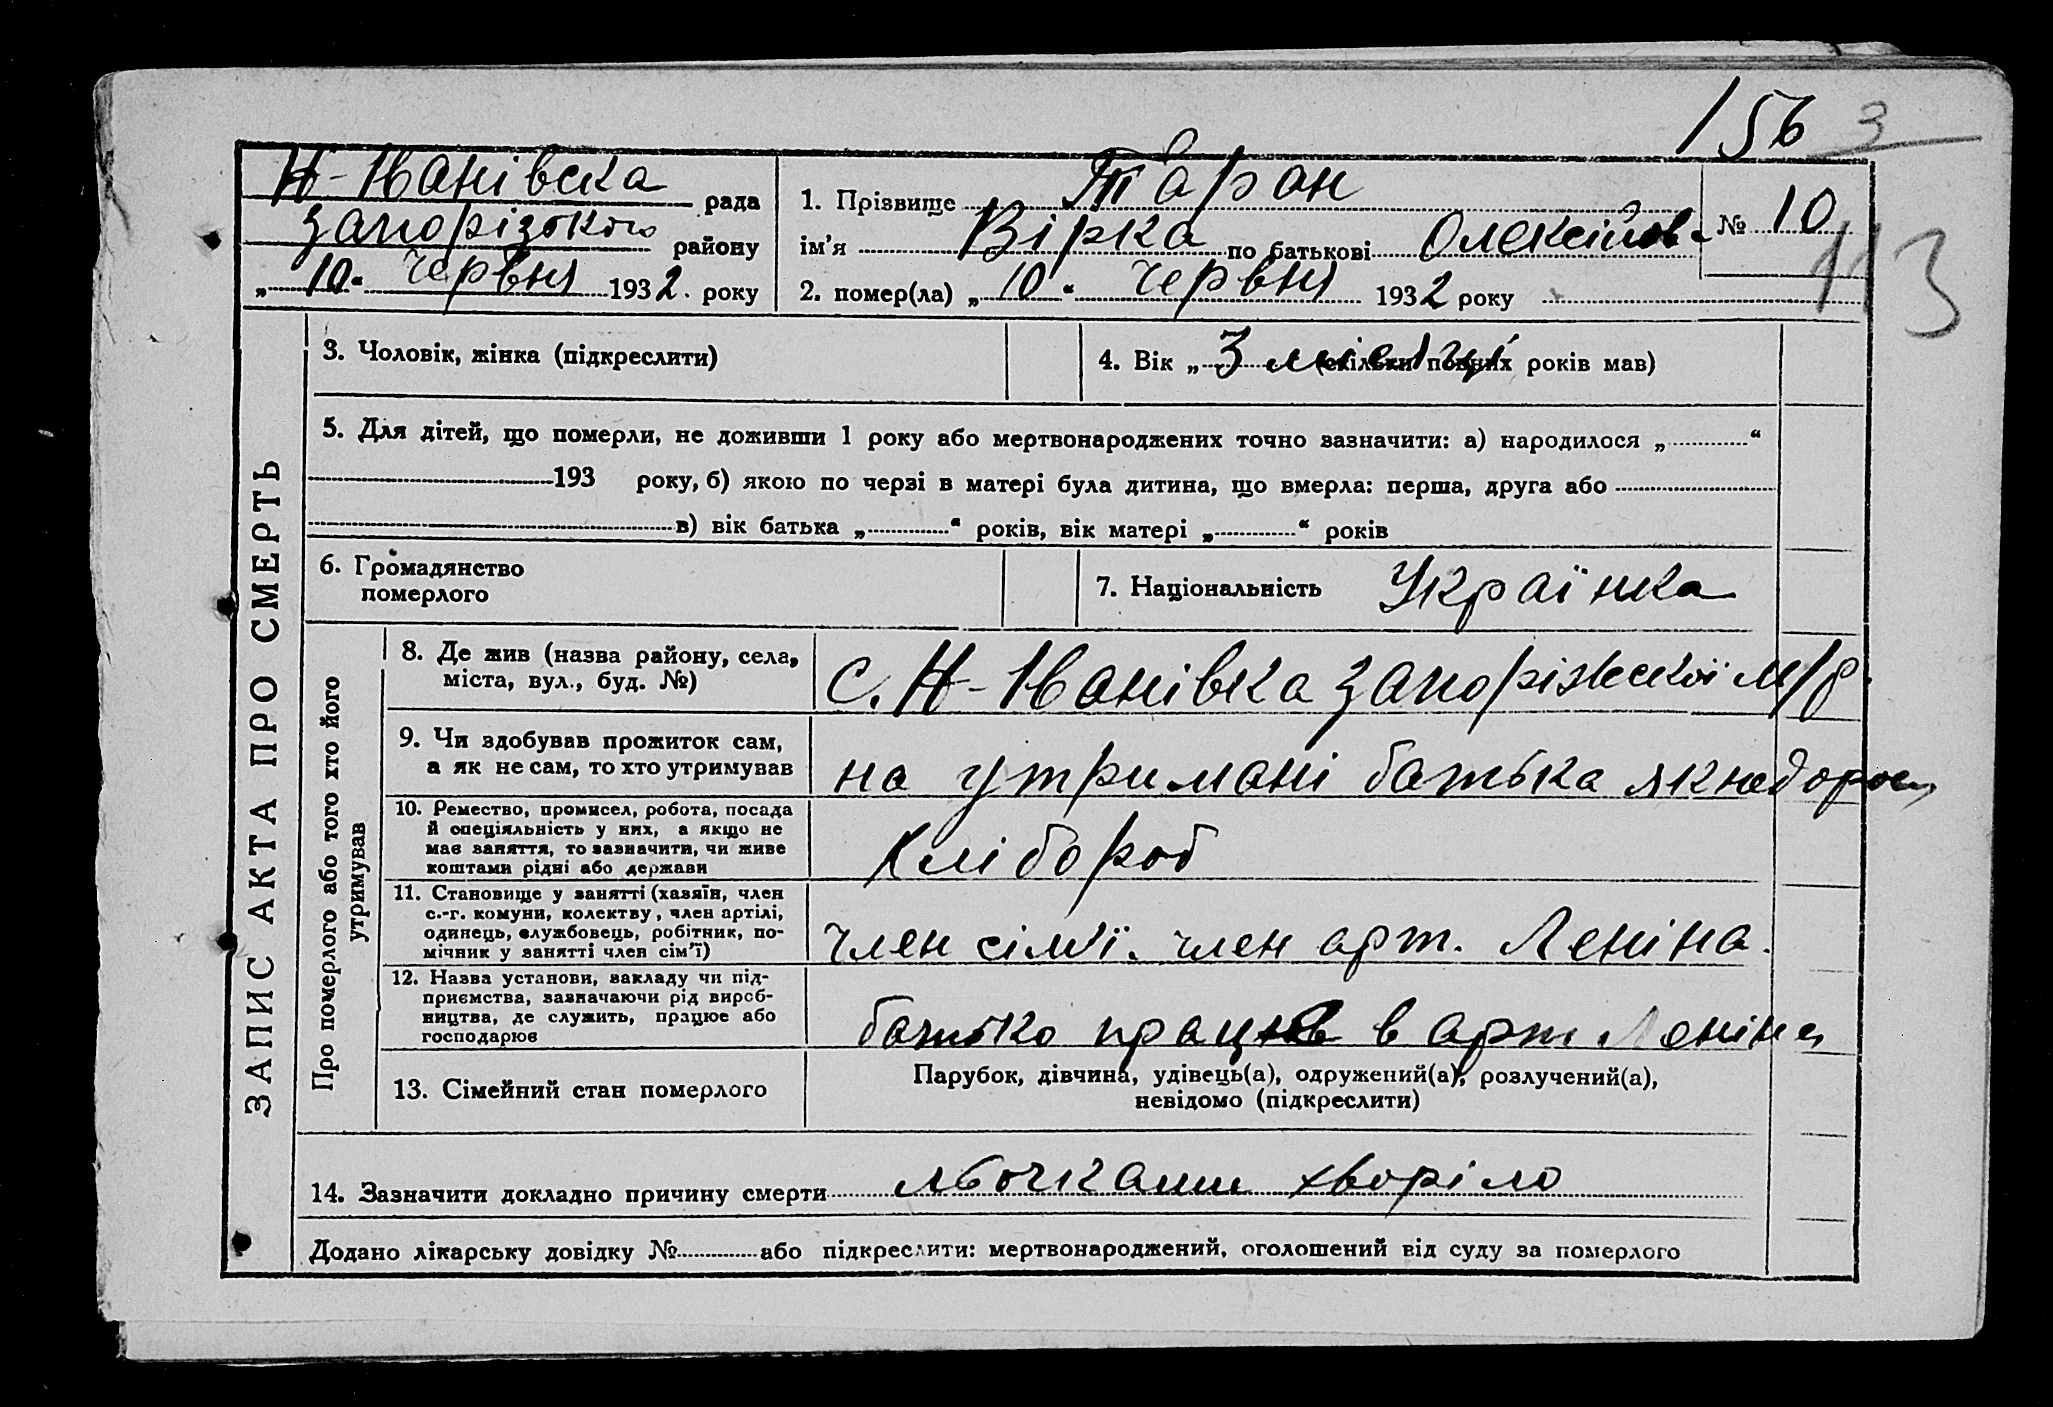 156 3
Н-Іванівска рада
Запорізького району
„ 10 “ червня 1932 . року
1. Прізвище Таран
ім’я Вірка по батькові Олексійов. № 10
2. помер(ла) „ 10 “ червня 1932 року
113
ЗАПИС АКТА ПРО СМЕРТЬ
3. Чоловік, жінка (підкреслити)
4. Вік „ 3 місяці (скільки повних років мав)
5. Для дітей, що померли, не доживши 1 року або мертвонароджених точно зазначити: а) народилося „ “
193 року, б) якою по черзі в матері була дитина, що вмерла: перша, друга або
в) вік батька „ “ років, вік матері „ “ років
6. Громадянство
померлого
7. Національність Українка
Про померлого або того хто його
утримував
8. Де жив (назва району, села,
міста, вул., буд. №)
с. Н-Іванівка Запоріжської м/р
9. Чи здобував прожиток сам,
а як не сам, то хто утримував
на утримані батька як недорос
10. Ремество, промисел, робота, посада
й спеціяльність у них, а якщо не
має заняття, то зазначити, чи живе
коштами рідні або держави
Хлібороб
11. Становище у занятті (хазяїн, член
с.-г. комуни, колектву, член артілі,
одинець, службовець, робітник, по-
мічник у занятті член сім’ї)
член сім’ї. член арт. Леніна.
12. Назва установи, закладу чи під-
приємства, зазначаючи рід вироб-
ництва, де служить, працює або
господарює
батько працює в арт Леніна
13. Сімейний стан померлого
Парубок, дівчина, удівець(а), одружений(а), розлучений(а),
невідомо (підкреслити)
14. Зазначити докладно причину смерти хворіло
Додано лікарську довідку № або підкреслити: мертвонароджений, оголошений від суду за померлого